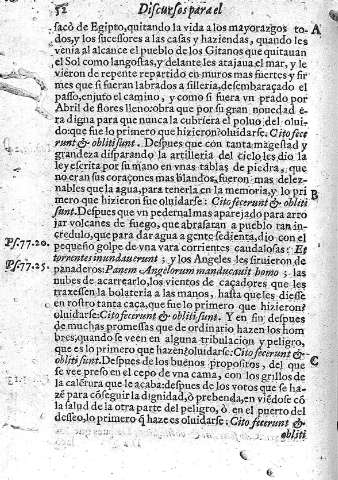 52 Discursos para el
sacò de Egipto, quitando la vida a los mayorazgos to- A
dos, y los sucessores a las casas y haziendas, quando les
venia al alcance el pueblo de los Gitanos que quitauan
el Sol como langostas, y delante les atajaua el mar, y le
vieron de repente repartido en muros mas fuertes y fir
mes que si fueran labrados a silleria, desembaraçado el
passo, enjuto el camino, y como si fuera vn prado por
Abril de flores lleno: obra que por su gran nouedad e-
ra digna para que nunca la cubriera el poluo del olui-
do: que fue lo primero que hizieron? oluidarse. Cito fece
runt & obliti sunt. Despues que con tanta magestad y
grandeza disparando la artilleria del cielo les dio la
ley escrita por su mano en vnas tablas de piedra, que
no eran sus coraçones mas blandos, fueron mas delez-
nables que la agua, para tenerla en la memoria, y lo pri B
mero que hizieron fue oluidarse: Cito fecerunt & obliti
sunt. Despues que vn pedernal mas aparejado para arro
jar volcanes de fuego, que abrasaran a pueblo tan in-
credulo, que para dar agua a gente sedienta, dio con el
Ps. 77. 20. pequeño golpe de vna vara corrientes caudalosas: Et
torrentes inundauerunt; y los Angeles les siruieron de
Ps. 77. 25. panaderos: Panem Angelorum manducauit homo; las
nubes de acarrearlo, los vientos de caçadores que les
traxessen la bolateria a las manos, hasta que les diesse
en rostro tanta caça, que fue lo primero que hizieron?
oluidarse: Cito fecerunt & obliti sunt. Y en fin despues
de muchas promessas que de ordinario hazen los hom
bres, quando se veen en alguna tribulacion y peligro,
que es lo primero que hazen? oluidarse: Cito fecerunt &
obliti sunt. Despues de los buenos propositos, del que C
se vee preso en el cepo de vna cama, con los grillos de
la calẽtura que le acaba: despues de los votos que se ha-
zẽ para cõseguir la dignidad, ò prebenda, en viẽdose cõ
la salud de la otra parte del peligro, ò en el puerto del
desseo, lo primero q̃ haze es oluidarse; Cito fecerunt &
obliti